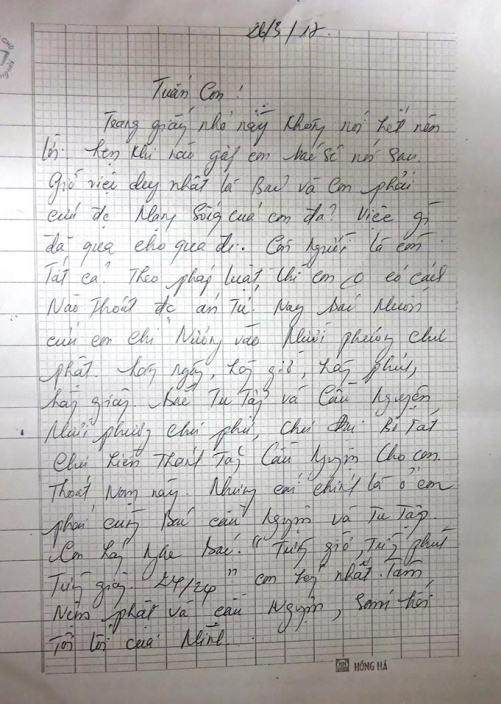 26/3/17.
Tuấn Con!
Trang giấy nhỏ này không nói hết nên
lời. hẹn khi nào gặp em bác sẽ nói sau.
Giờ việc duy nhất là Bác và con phải
cứu đc Mạng Sống của con đã? Việc gì
đã qua cho qua đi. Con người là còn
Tất cả. Theo pháp luật, thì em có cách
Nào Thoát đc án Tử. Nay bác Muốn
cứu em chỉ Nương vào Mười phương chư
phật. hàng ngày, hàng giờ, hàng phút,
hàng giây. Bác Tu Tập và Cầu Nguyện
Mười phương chư phật, chư Bồ Tát
Chư Hiền Thánh Tăng Cầu Nguyện Cho con
Thoát Nạn này. Nhưng cái chính là ở em
phải cùng Bác cầu Nguyện và Tu Tập
Con hãy Nghe Bác. "Từng giờ, Từng phút
Từng giây. 24/24" con hãy nhất Tâm
Niệm phật và cầu Nguyện, Sám hối
Tội lỗi của Mình.
HỒNG HÀ